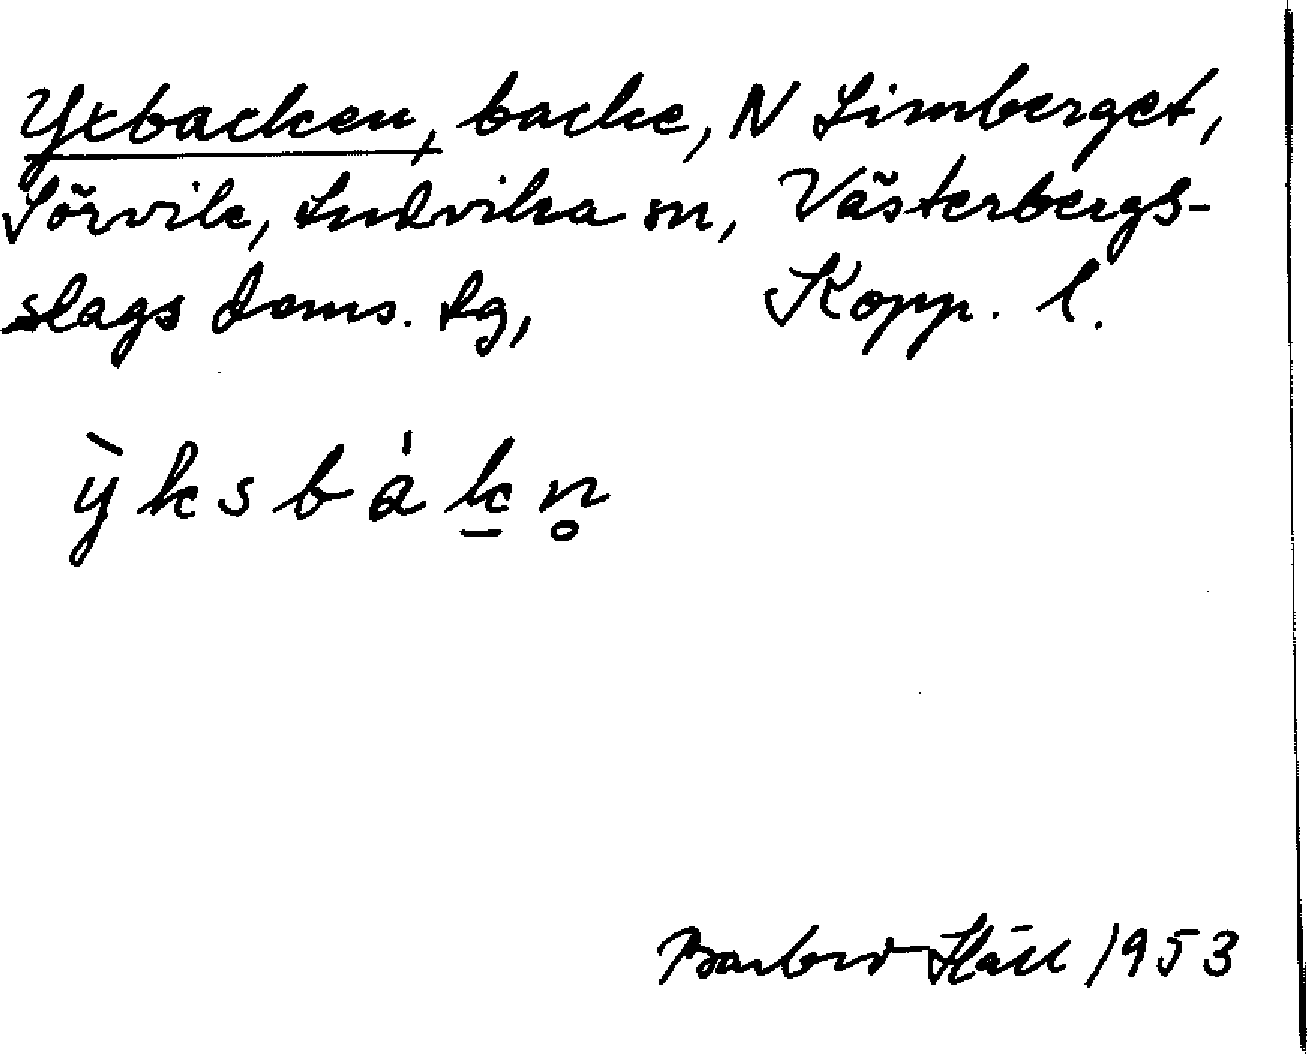 Yxbacken, backe, N Limberget,
Sörvik, Ludvika sn, Västerbergs-
slags doms. dg, Kopp. l.
ỳ k s b a̍ k̠ n̥
Barbro Ståll 1953